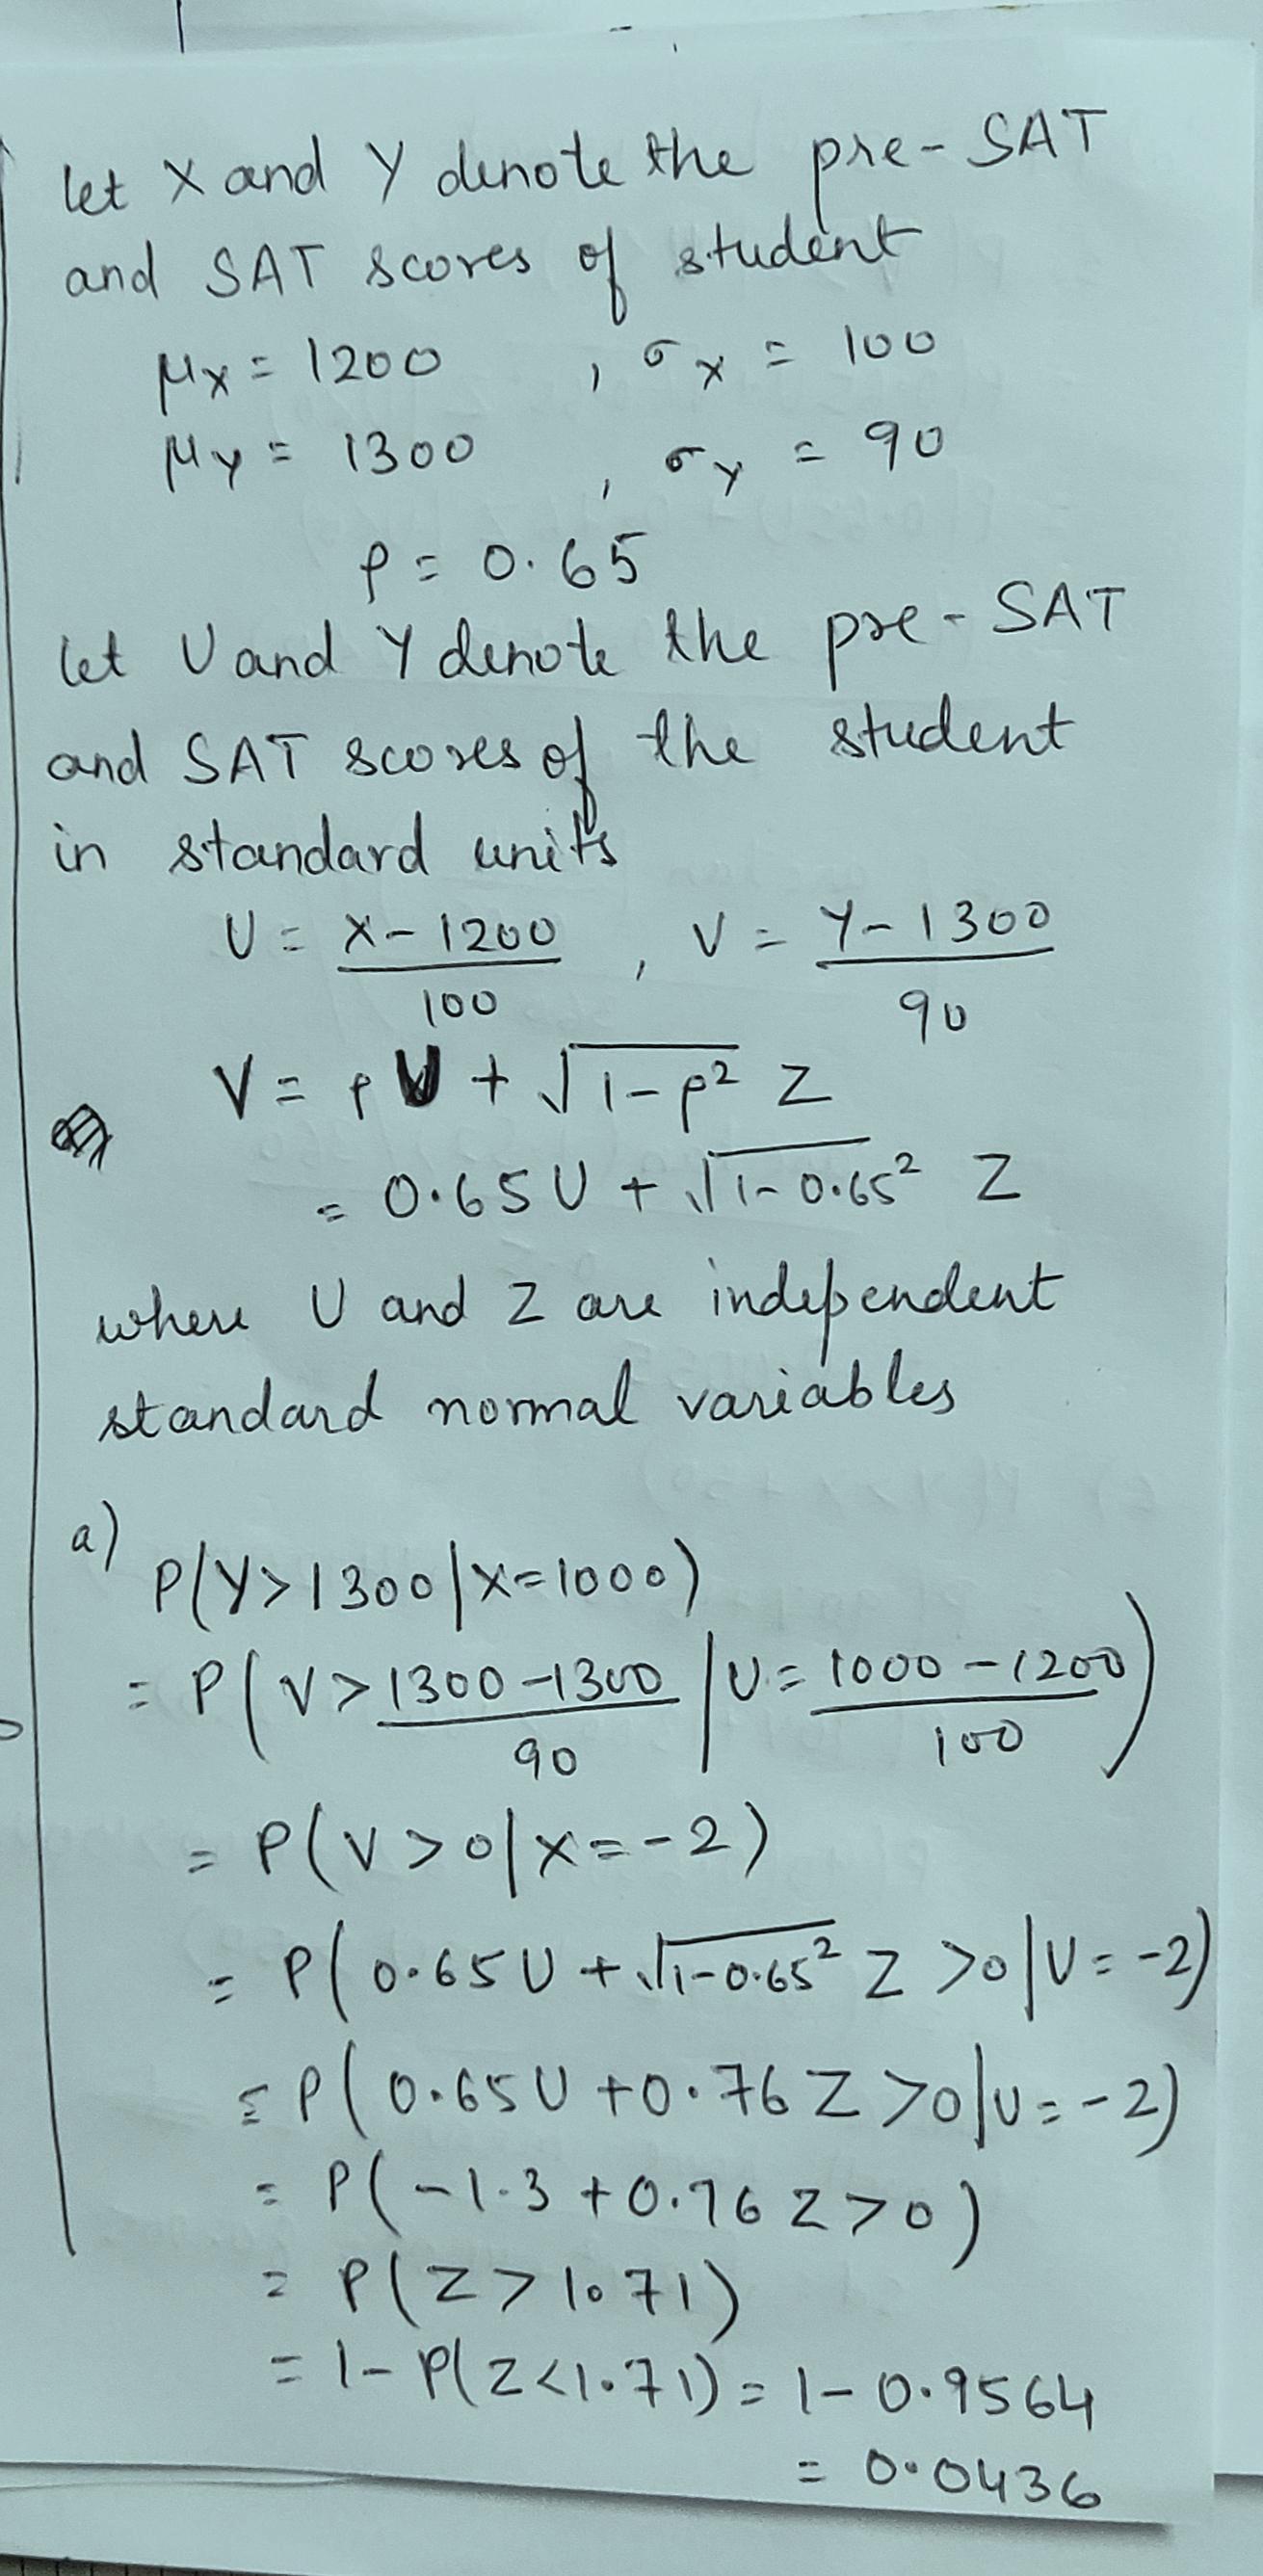 let X and Y denote the pre-SAT
and SAT scores of student
μx = 1200 , σx = 100
μy = 1300 , σy = 90
ρ = 0.65
let U and Y denote the pre-SAT
and SAT scores of the student
in standard units
U = X-1200/100 , V = Y-1300/90
V = ρU + √1-ρ² Z
= 0.65U + √1-0.65² Z
where U and Z are independent
standard normal variables
a)
P(Y>1300|X=1000)
= P(V> 1300-1300/90 | U = 1000-1200/100)
= P(V>0|X=-2)
= P(0.65U + √1-0.65² Z >0|U=-2)
= P(0.65U +0.76Z >0|U=-2)
= P(-1.3 +0.76Z>0)
= P(Z>1.71)
= 1- P(Z<1.71) = 1- 0.9564
= 0.0436